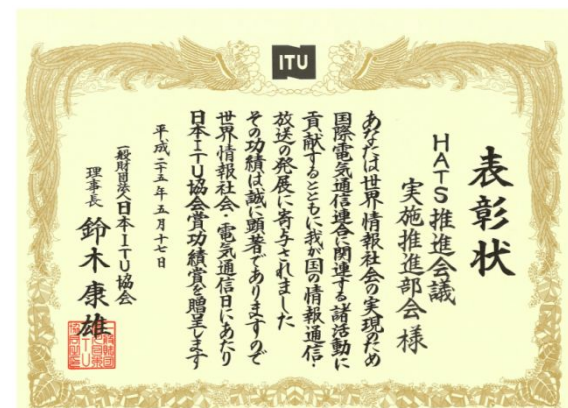 ITU
表彰状
HATS推進会議
実施推進部会様
あなたは世界情報社会の実現のため
国際電気通信連合に関連する諸活動に
貢献するとともに我が国の情報通信・
放送の発展に寄与されました
その功績は誠に顕著でありますので
世界情報社会・電気通信日にあたり
日本ITU協会賞功績賞を贈呈します
平成二十五年五月十七日
一般財団法人日本ITU協会
理事長 鈴木康雄